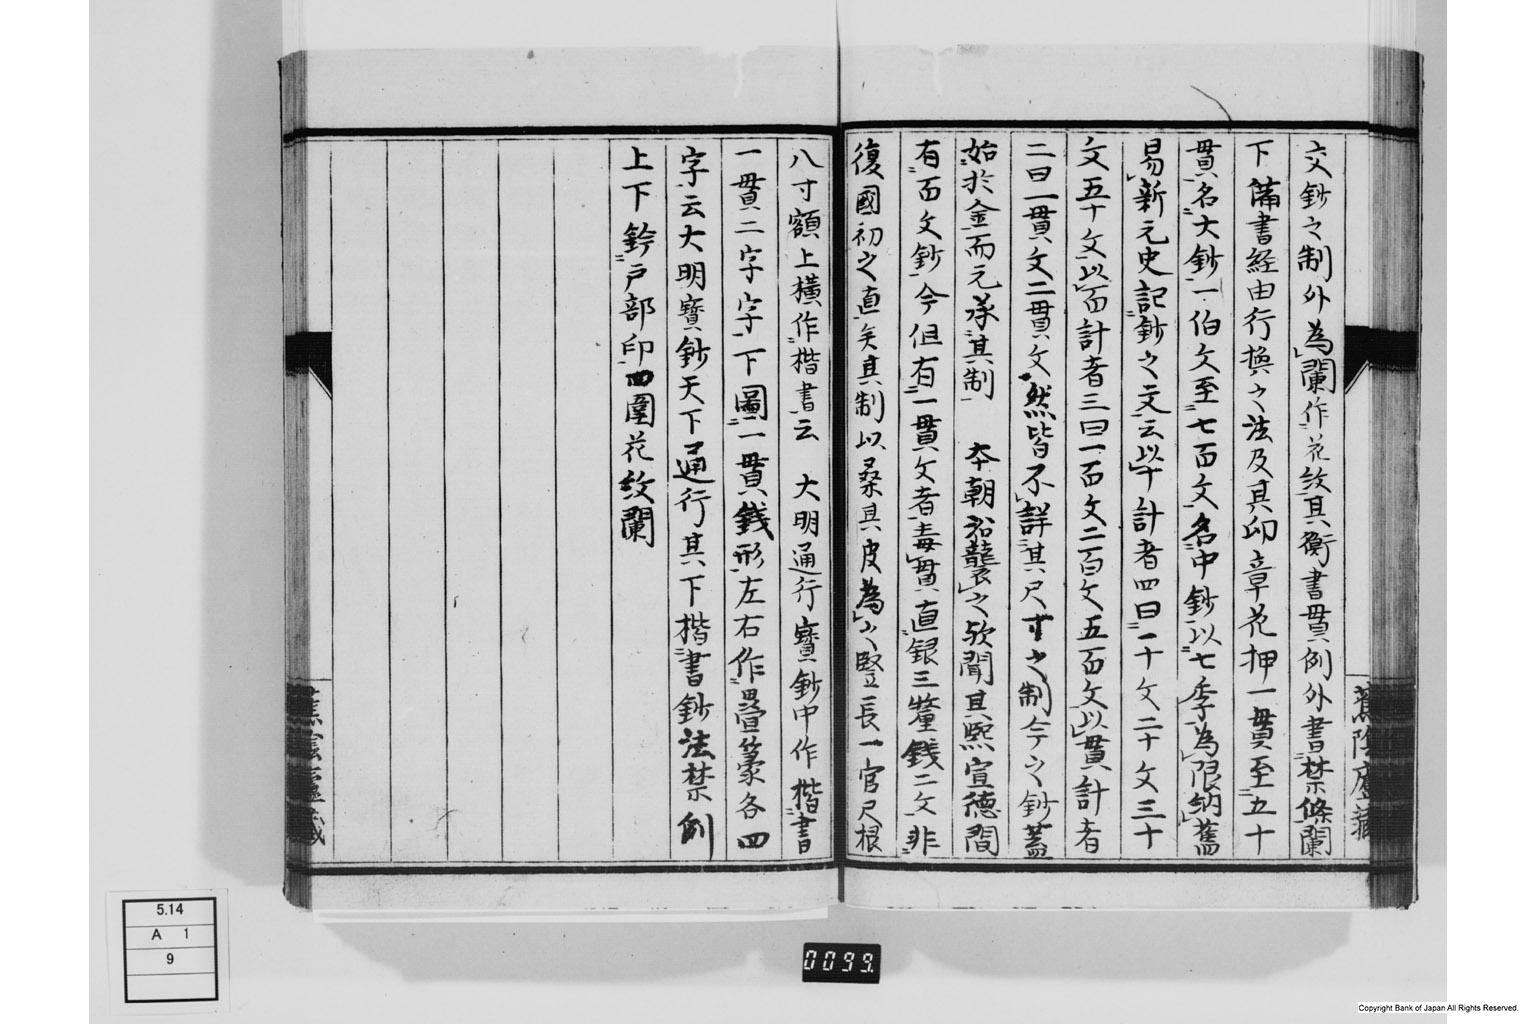 交鈔之制外為闌作花紋其衡書貫例外書禁條闌
下備書經由行換之法及其印章花押一貫至五十
貫名大鈔一伯文至七百文名中鈔以七季為限納舊
易新元史記鈔之文云以十計者四曰一十文二十文三十
文五十文以百計者三曰一百文二百文五百文以貫計者
二曰一貫文二貫文然皆不詳其尺寸之制今之鈔蓋
始於金而元承其制 本朝沿襲之欤聞其熙宣德間
有百文鈔今但有一貫文者毒貫直銀三釐錢二文非
復國初之直矣其制以桑其皮為之竪長一官尺根
八寸額上橫作楷書云 大明通行寳鈔中作楷書
一貫二字字下圖一貫錢形左右作疊篆各四
字云大明寳鈔天下通行其下楷書鈔法禁例
上下鈐戶部印四圍花紋闌
蕉陰廬藏
蕉蔭廬藏
5.14
A 1
9
0099.
Copyright Bank of Japan All Rights Reserved.